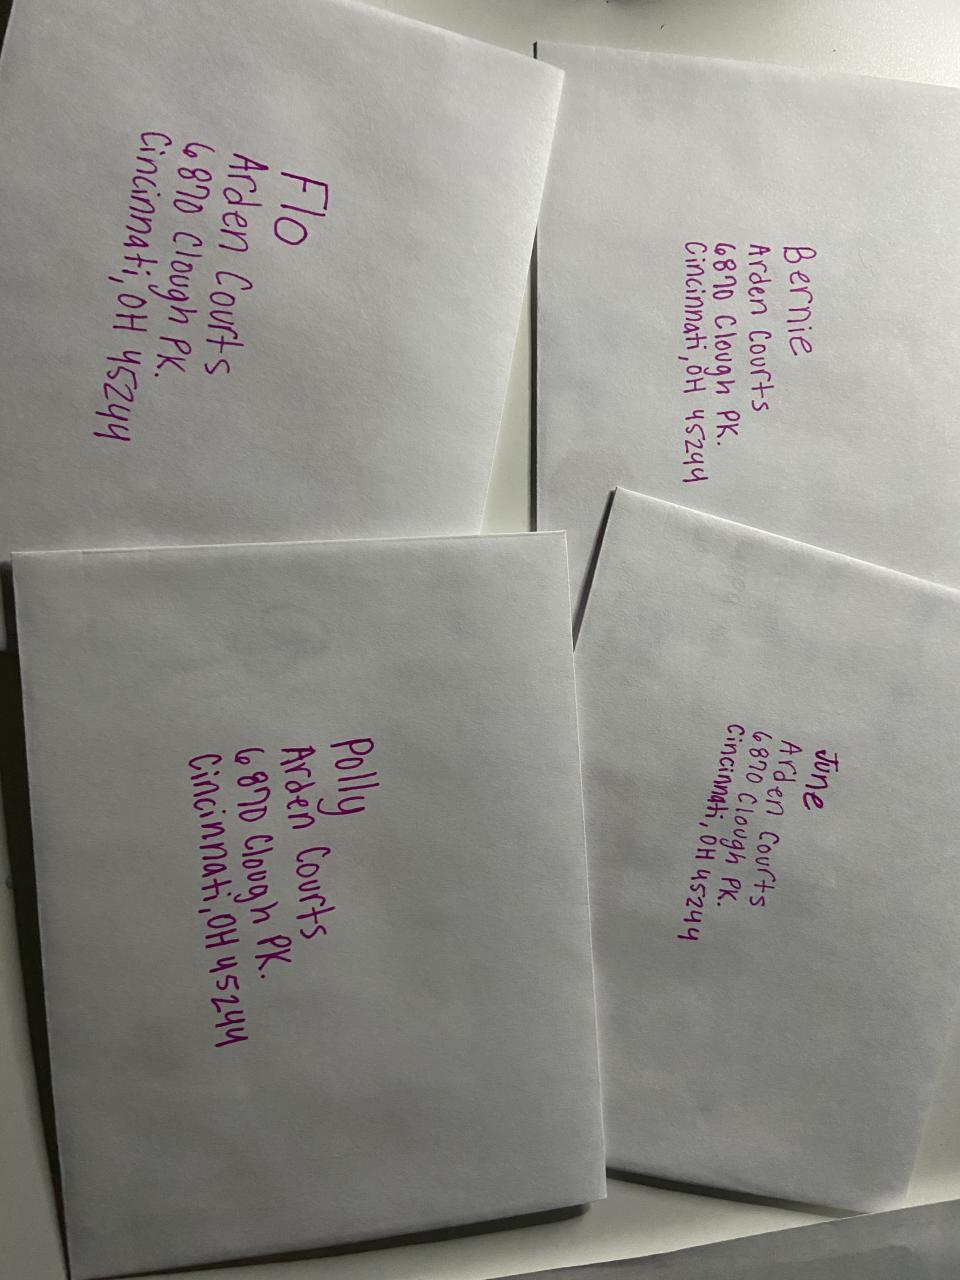 Flo
Arden Courts
6870 Clough PK.
Cincinnati, OH 45244
Bernie
Arden Courts
6870 Clough PK.
Cincinnati, OH 45244
Polly
Arden Courts
6870 Clough PK.
Cincinnati, OH 45244
June
Arden Courts
6870 Clough PK.
Cincinnati, OH 45244